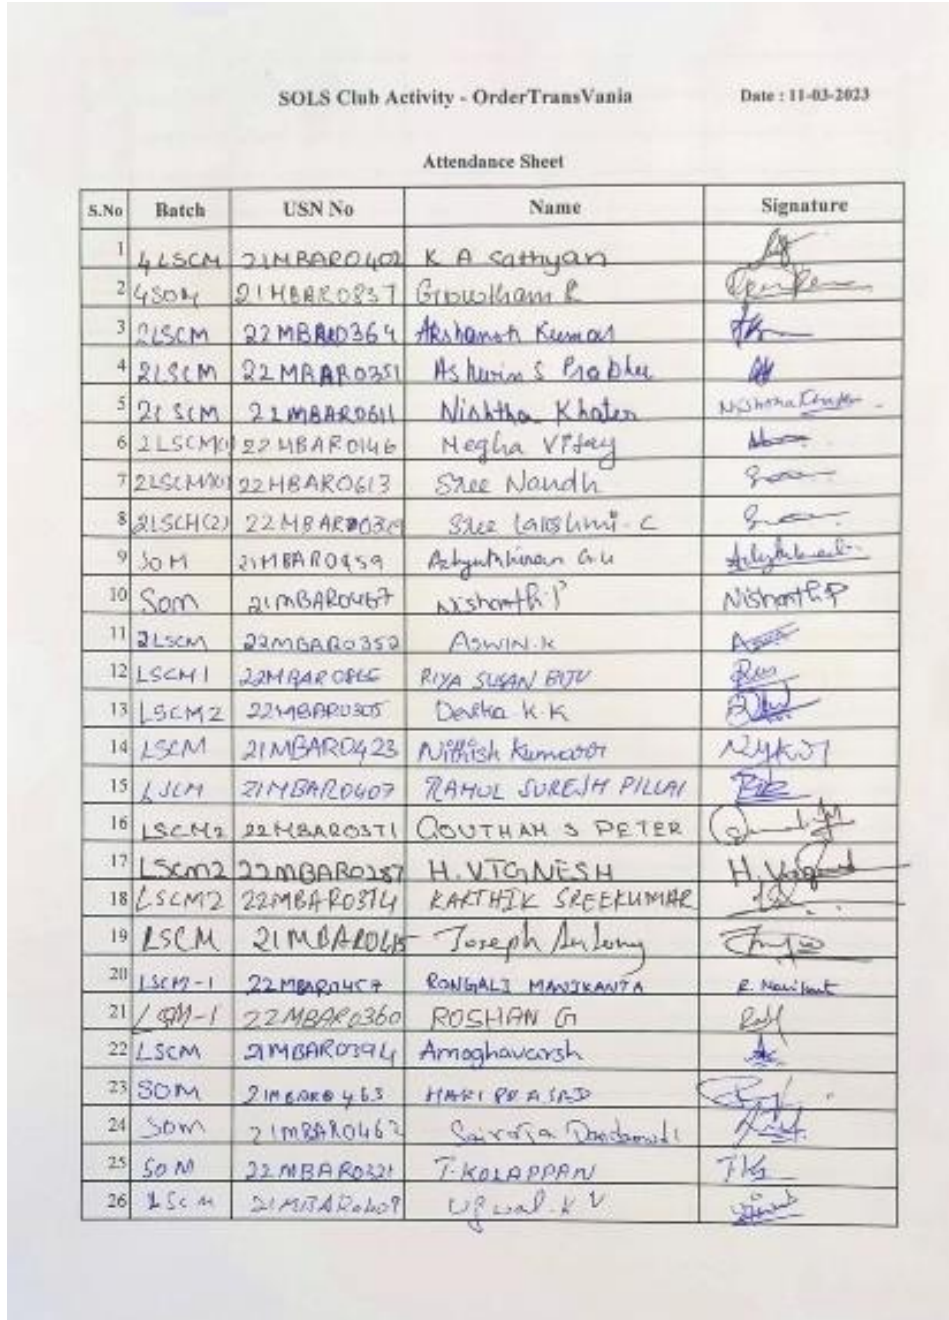 SOLS Club Activity - OrderTransVania Date : 11-03-2023
Attendance Sheet
S.No Batch USN No Name Signature
1 4LSCM 21MBAR0402 K A Sathyan
2 4SOM 21MBAR0837 Gowtham R
3 2LSCM 22MBAR0364 Akshansh Kumar
4 2LSCM 22MBAR0351 Ashwin S Prabhu
5 2LSCM 22MBAR0611 Nishtha Khater
6 2LSCM(1) 22MBAR0146 Megha Vijay
7 2LSCM 22MBAR0613 Sree Nandh
8 2LSCM(2) Sree Lakshmi. C
9 SOM 21MBAR0459
10 SOM 21MBAR0467 Nishanth.P Nishanth.P
11 2LSCM 22MBAR0352 ASWIN.K
12 LSCM1 RIYA SUSAN BIJU
13 LSCM2 22MBAR0305 Devika K.K
14 LSCM 21MBAR0423 Nithish Kumar
15 LSCM 21MBAR0407 RAHUL SURESH PILLAI
16 LSCM2 22MBAR0371 GOUTHAM S PETER
17 LSCM2 22MBAR0287 H.VIGNESH
18 LSCM2 22MBAR0374 KARTHIK SREEKUMAR
19 LSCM 21MBAR0415 Joseph Antony
20 LSCM-1 22MBAR0457 RONGALI MANIKANTA R. Manikant
21 LSCM-1 22MBAR0360 ROSHAN G
22 LSCM 21MBAR0394 Amoghavarsh
23 SOM 21MBAR0463 HARI PRASAD
24 SOM 21MBAR0462 Dandamudi
25 SOM 22MBAR0321 T.KOLAPPAN
26 LSCM 21MBAR0409 Ujwal.K V